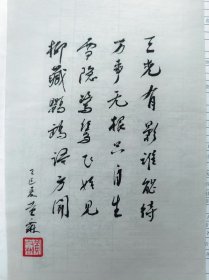 三光有影谁能待
万事无根只自生
雪隐鹭鸶飞始见
柳藏鹦鹉语方闻
乙巳夏